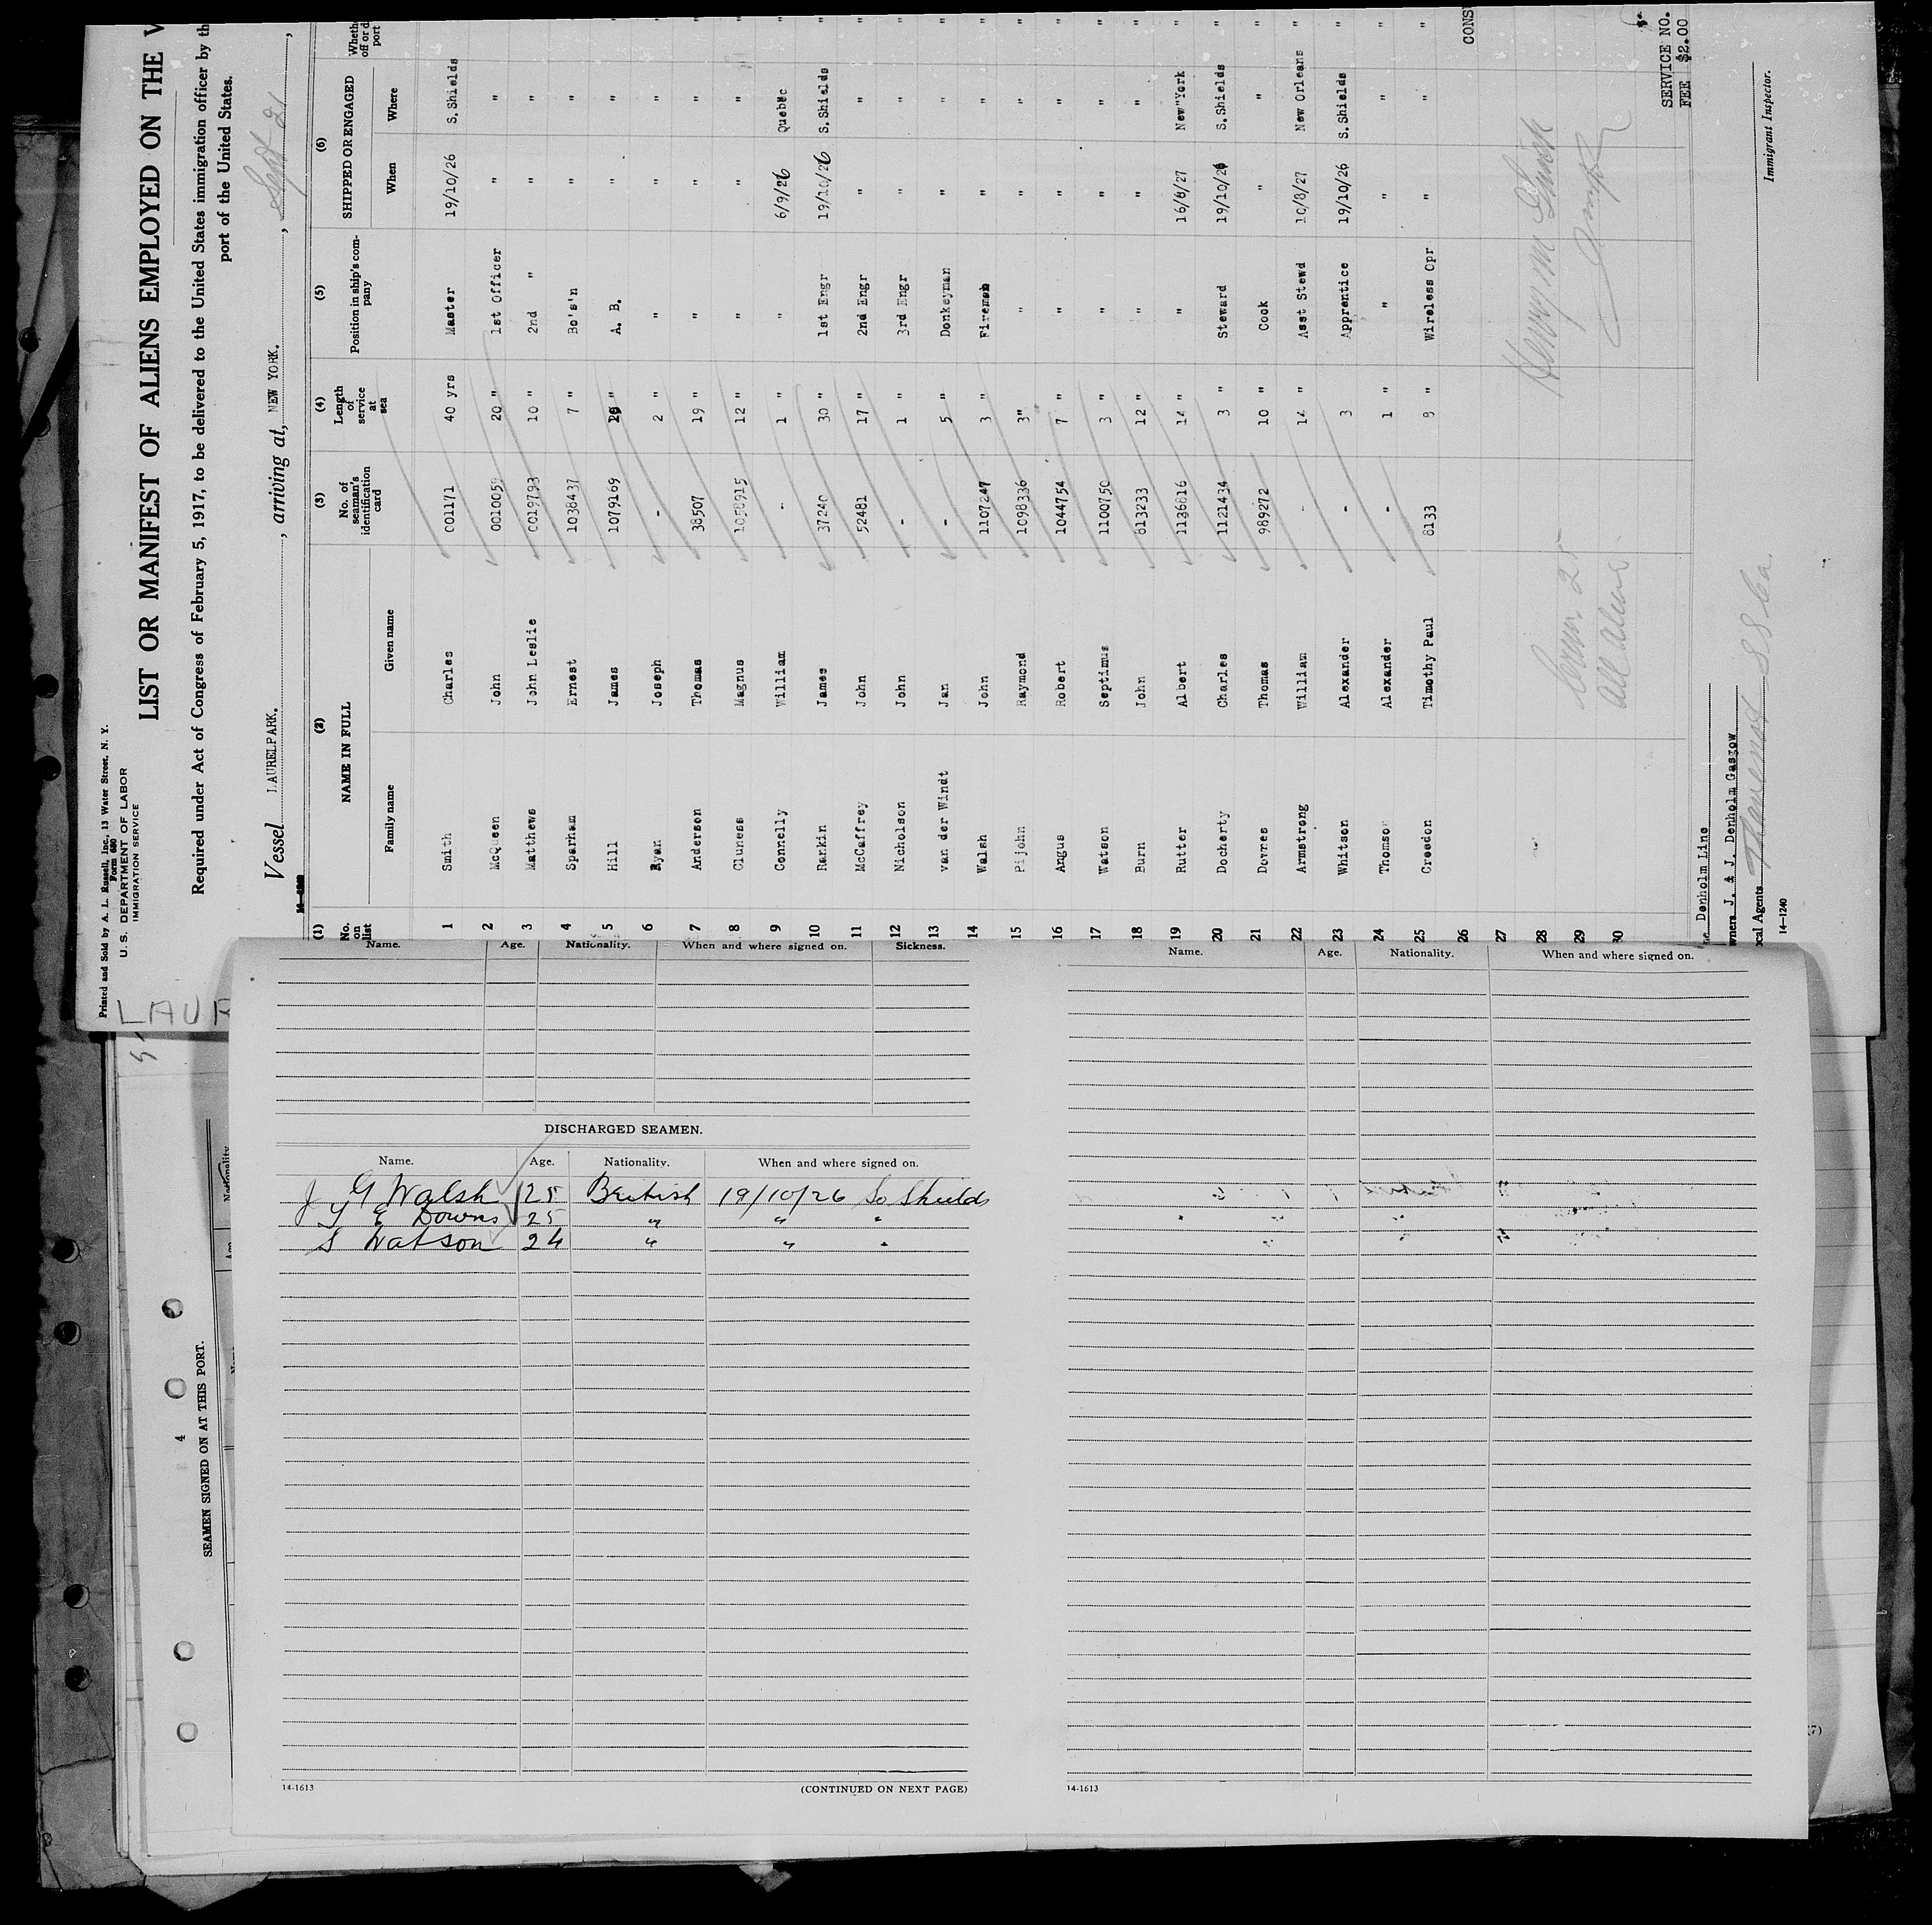 Printed and Sold by A. L. Russell, Inc., 13 Water Street, N. Y.
Form 680
U. S. DEPARTMENT OF LABOR
IMMIGRATION SERVICE
LIST OR MANIFEST OF ALIENS EMPLOYED ON THE V
Required under Act of Congress of February 5, 1917, to be delivered to the United States immigration officer by th
port of the United States.
Vessel LAURELPARK. , arriving at, NEW YORK. , Sept 21 ,
(1) (2) (3) (4) (5) (6)
No. on list NAME IN FULL No. of seaman's identification card Length of service at sea Position in ship's company SHIPPED OR ENGAGED Wheth off or d port
Family name Given name When Where
1 Smith Charles 001171 40 yrs Master 19/10/26 S.Shields "
2 McQueen John 0010059 20 " 1st Officer " " "
3 Matthews John Leslie 0019793 10 " 2nd " " " "
4 Sparham Ernest 1038437 7 " Bo's'n " " "
5 Hill James 1079169 " A. B. " " "
6 Ryan Joseph - 2 " " " " "
7 Anderson Thomas 38507 19 " " " " "
8 Cluness Magnus 1058915 12 " " " " "
9 Connelly William - 1 " " 6/9/26 Quebec "
10 Rankin James 37240 30 " 1st Engr 19/10/26 S.Shields "
11 McCaffrey John 52481 17 " 2nd Engr " " "
12 Nicholson John - 1 " 3rd Engr " " "
13 van der Windt Jan - 5 " Donkeyman " " "
14 Walsh John 1107247 3 " Fireman " " "
15 Pijohn Raymond 1098336 3" " " " "
16 Angus Robert 1044754 7 " " " " "
17 Watson Septimus 1100750 3 " " " " "
18 Burn John 813233 12 " " " " "
19 Rutter Albert 1136816 14 " " 16/8/27 New"York "
20 Docherty Charles 1121434 3 " Steward 19/10/26 S.Shields "
21 Dovres Thomas 989272 10 " Cook " " "
22 Armstrong William - 14 " Asst Stewd 10/8/27 New Orleans "
23 Whitson Alexander - 3 " Apprentice 19/10/26 S.Shields "
24 Thomson Alexander - 1 " " " " "
25 Creedon Timothy Paul 8133 8 " Wireless Opr " " "
26
27
28
29
30
CONS
25
All Aliens
Henry M
SERVICE NO.
FEE $2.00
Denholm Line
wners J. & J. Denholm Gasgow
ocal Agents
Immigrant Inspector.
14-1240
LAUR
4
SEAMEN SIGNED ON AT THIS PORT.
Nationality
Name. Age. Nationality. When and where signed on. Sickness.
DISCHARGED SEAMEN.
Name. Age. Nationality. When and where signed on.
J G Walsh 25 British 19/10/26 So Shields
T E Downs 25 " " "
S Watson 24 " " "
14-1613 (CONTINUED ON NEXT PAGE)
Name. Age. Nationality. When and where signed on.
14-1613
(7)